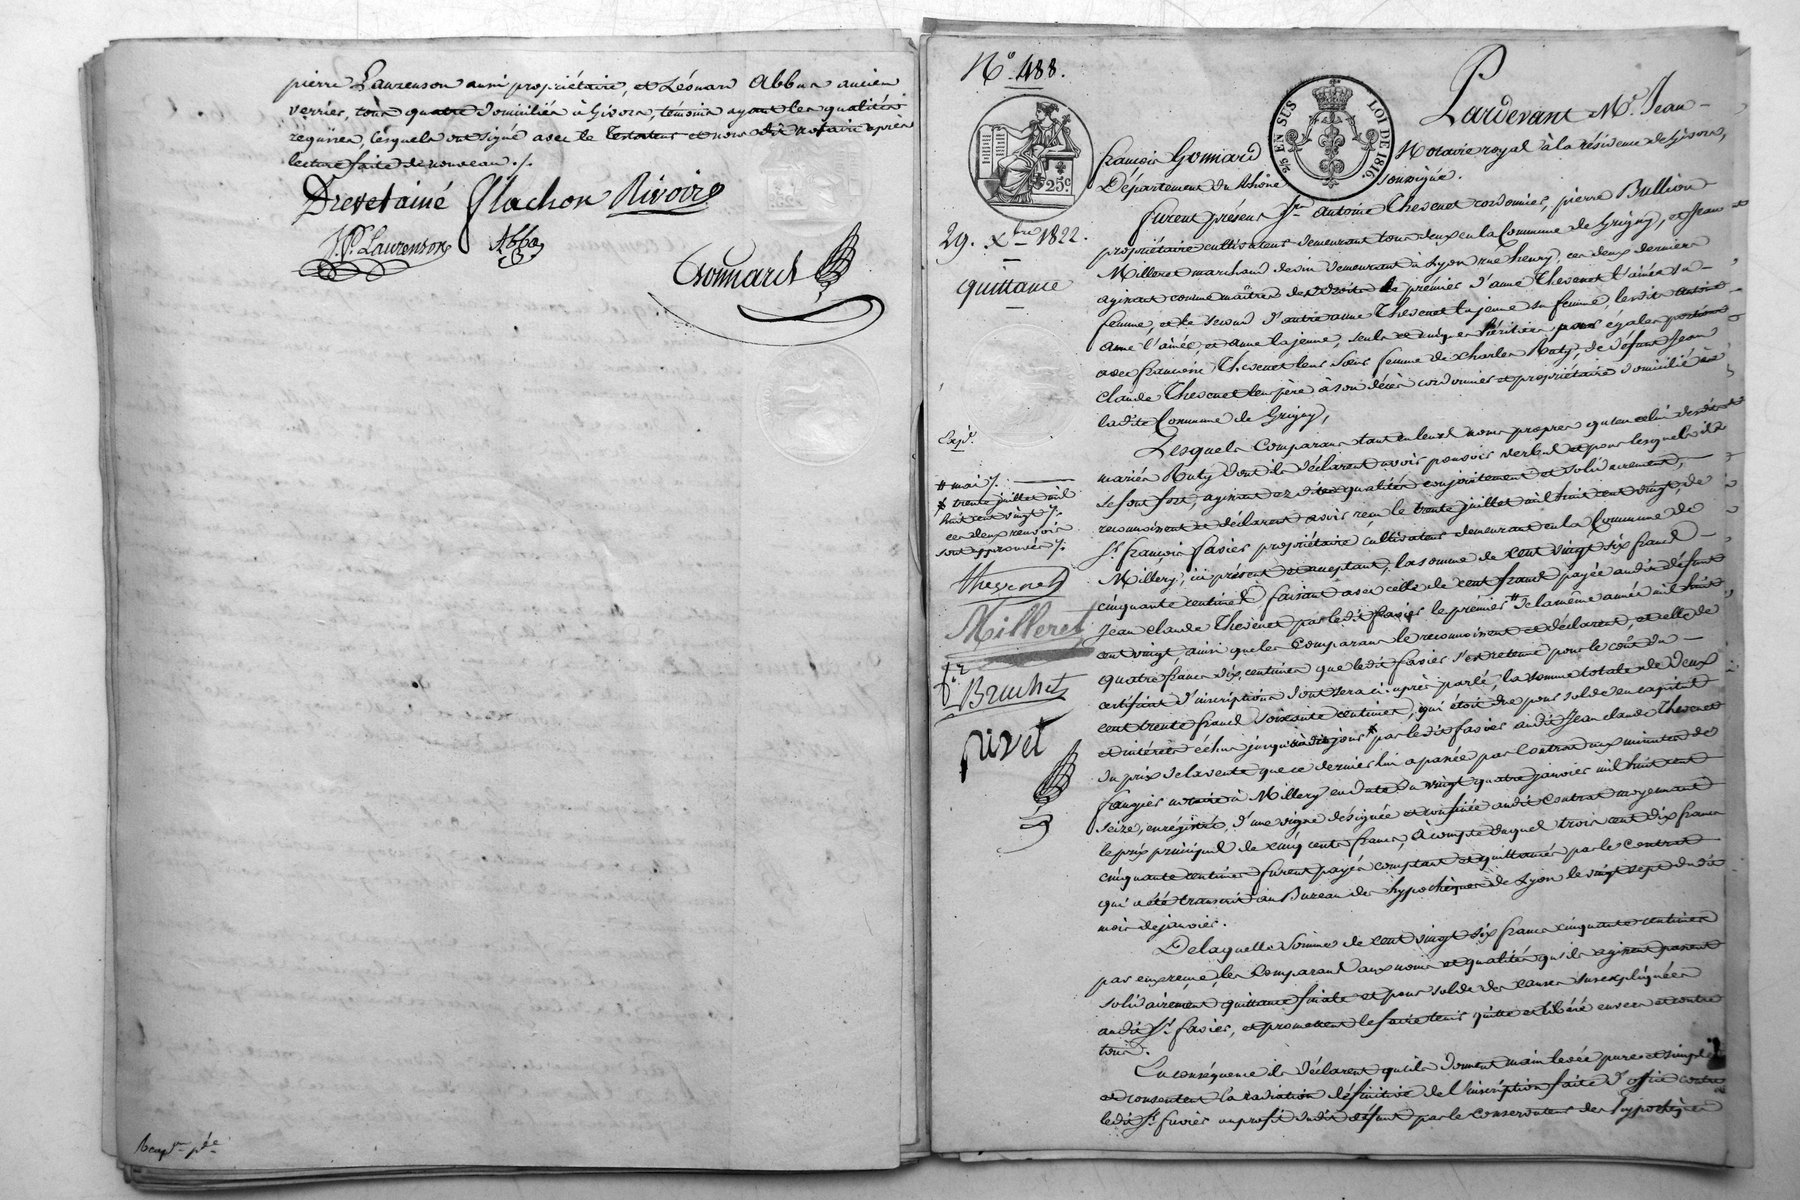 pierre Laurenson aussi propriétaire, et Léonard Abbon ancien
verrier, tous quatre domiciliés à Givors, témoins ayant les qualités
requises, lesquels ont signé avec le testateur et nous dit notaire après
lecture faite de nouveau ./.
Drevet ainé Flachon Rivoire
J. P. Laurenson Abbon
Gonnard
N° 488.
25 EN SUS
LOI DE 1816.
25c
Pardevant Me. Jean-
françois Gonnard Notaire royal à la résidence de Givors,
Département du Rhône soussigné.
29. Xbre 1822.
quittance
furent présens Sr. Antoine Thevenet cordonnier, pierre Bullion
propriétaire cultivateur demeurant tous deux en la Commune de Grigny, et Jean
Milleret marchand devin demeurant à Lyon rue henry, ces deux derniers
agissant comme maîtres des droits le premier d'anne Thevenet l'ainée sa
femme, et le second d'autre anne Thevenet la jeune sa femme, lesdits antoine
anne l'ainée, et anne la jeune, seuls et uniques héritiers pour égales portions
avec françoise Thevenet leur sœur femme de Charles Ruty, de défunt Jean
Claude Thevenet leur père à son décès cordonnier et propriétaire domicilié en
ladite Commune de Grigny,
Lesquels Comparans tant en leurs noms propres qu'en celui desdits
mariés Ruty dont ils déclarent avoir pouvoir verbal et pour lesquels ils
se font fort, agissant ez dites qualités conjointement et solidairement,
reconnoissent et déclarent avoir reçu le trente juillet mil huit cent vingt, de
Sr. françois favier propriétaire cultivateur demeurant en la Commune de
Millery, ici présent et acceptant, la somme de cent vingt six francs
cinquante centimes faisant avec celle de cent francs payée audit défunt
Jean Claude Thevenet par ledit favier le premier # de la même année mil huit
cent vingt, ainsi que les Comparans le reconnoissent et déclarent, et celle de
quatre francs dix centimes que ledit favier s'est retenue pour le coût du
certificat d'inscriptions dont sera ci-après parlé, la somme totale de deux
cent trente francs soixante centimes, qui étoit due pour solde en capital
et intérêts échus jusqu'audit jour * par ledit favier audit Jean claude Thevenet
du prix de la vente que ce dernier lui a passée par Contrat aux minutes de
fangier notaire à Millery en date du vingt quatre janvier mil huit cent
seize, enregistré, d'une vigne désignée et confinée audit contrat moyennant
le prix principal de cinq cents francs, à compte duquel trois cent dix francs
cinquante centimes furent payés comptant et quittancés par le contrat
qui a été transcrit au Bureau des hypothèques de Lyon le vingt sept dudit
mois de janvier.
De laquelle Somme de cent vingt six francs cinquante centimes
par eux reçue, les Comparans aux noms et qualités qu'ils agissent passent
solidairement quittance finale et pour solde des causes susexpliquées
audit Sr. favier, et promettent le faire tenir quitte et libéré envers et contre
tous.
En conséquence ils déclarent qu'ils donnent main levée pure et simple
et consentent la radiation définitive de l'inscription faite d'office contre
ledit Sr. favier au profit dudit défunt par le conservateur des hypothèques
Expé.
# mai /.
* trente juillet mil
huit cent vingt /.
ces deux renvois
sont approuvés /.
thevenet
Milleret
Bruchet
rivet